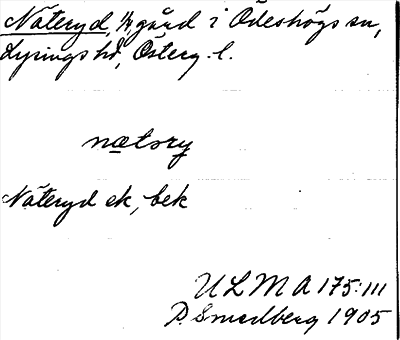 Näteryd, 1/4 gård i Ödeshögs sn,
Lysings hd, Österg. l.
nætsry
Näteryd ek, bek
ULMA 175:111
P. Smedberg 1905